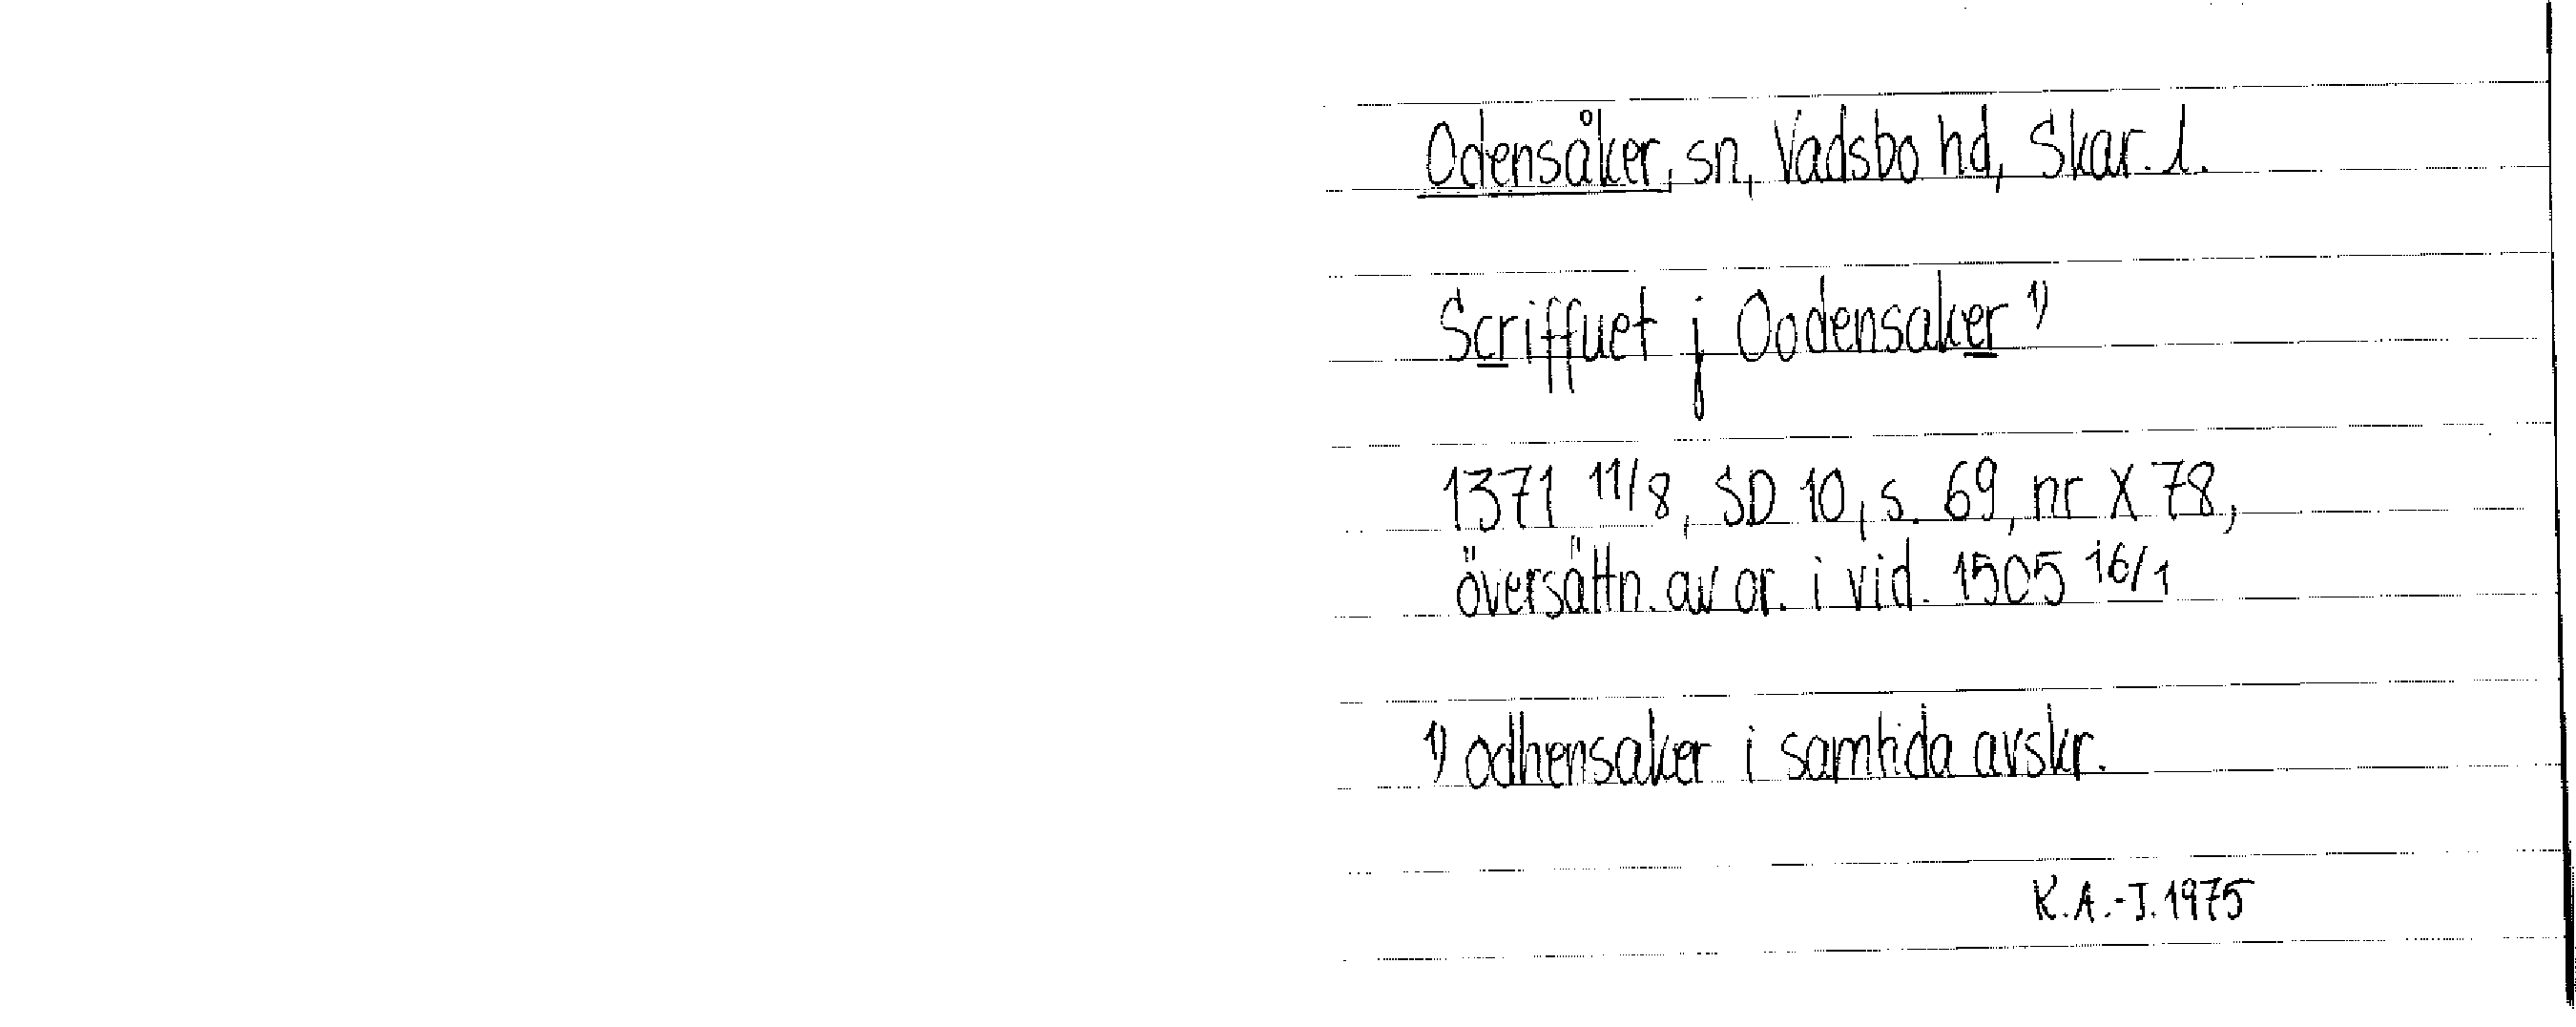 Odensåker, sn, Vadsbo hd, Skar. l.
Scriffuet j Oodensaker 1)
1371 11/8, SD 10, s. 69, nr X 78,
översättn. av or. i vid. 1505 16/1
1) odhensaker i samtida avskr.
K.A.-J. 1975